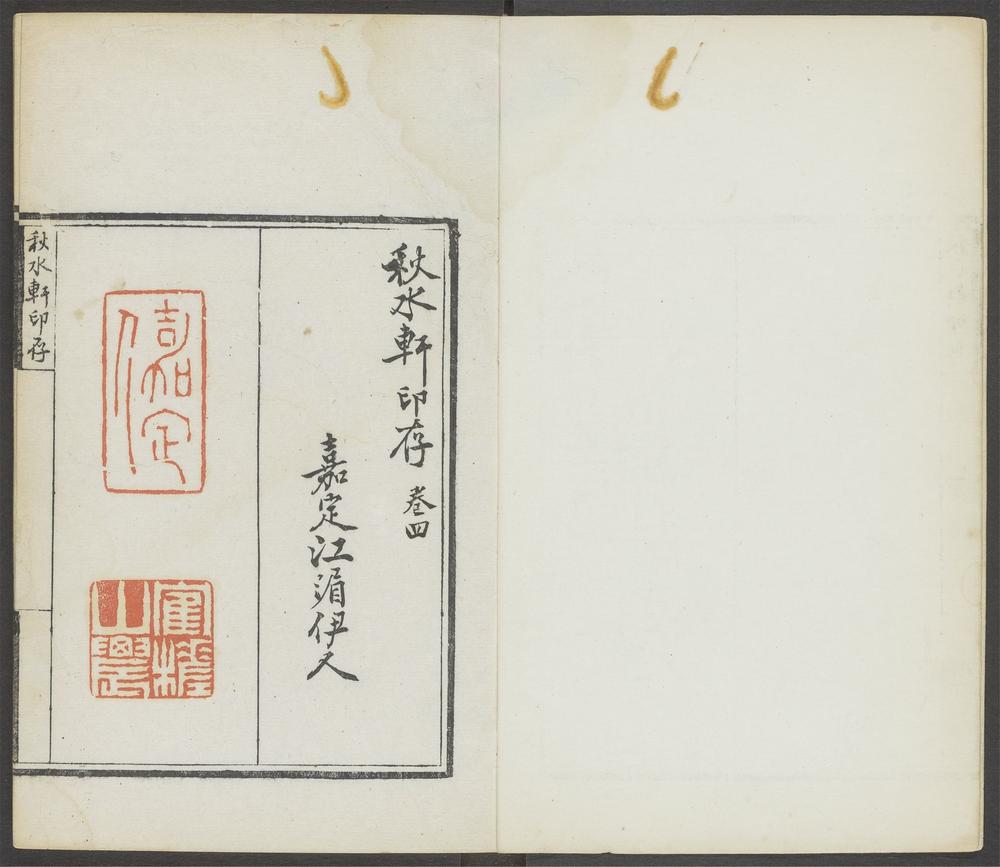 秋水軒印存 卷四
嘉定江湄伊人
嘉定人
秋水軒印存